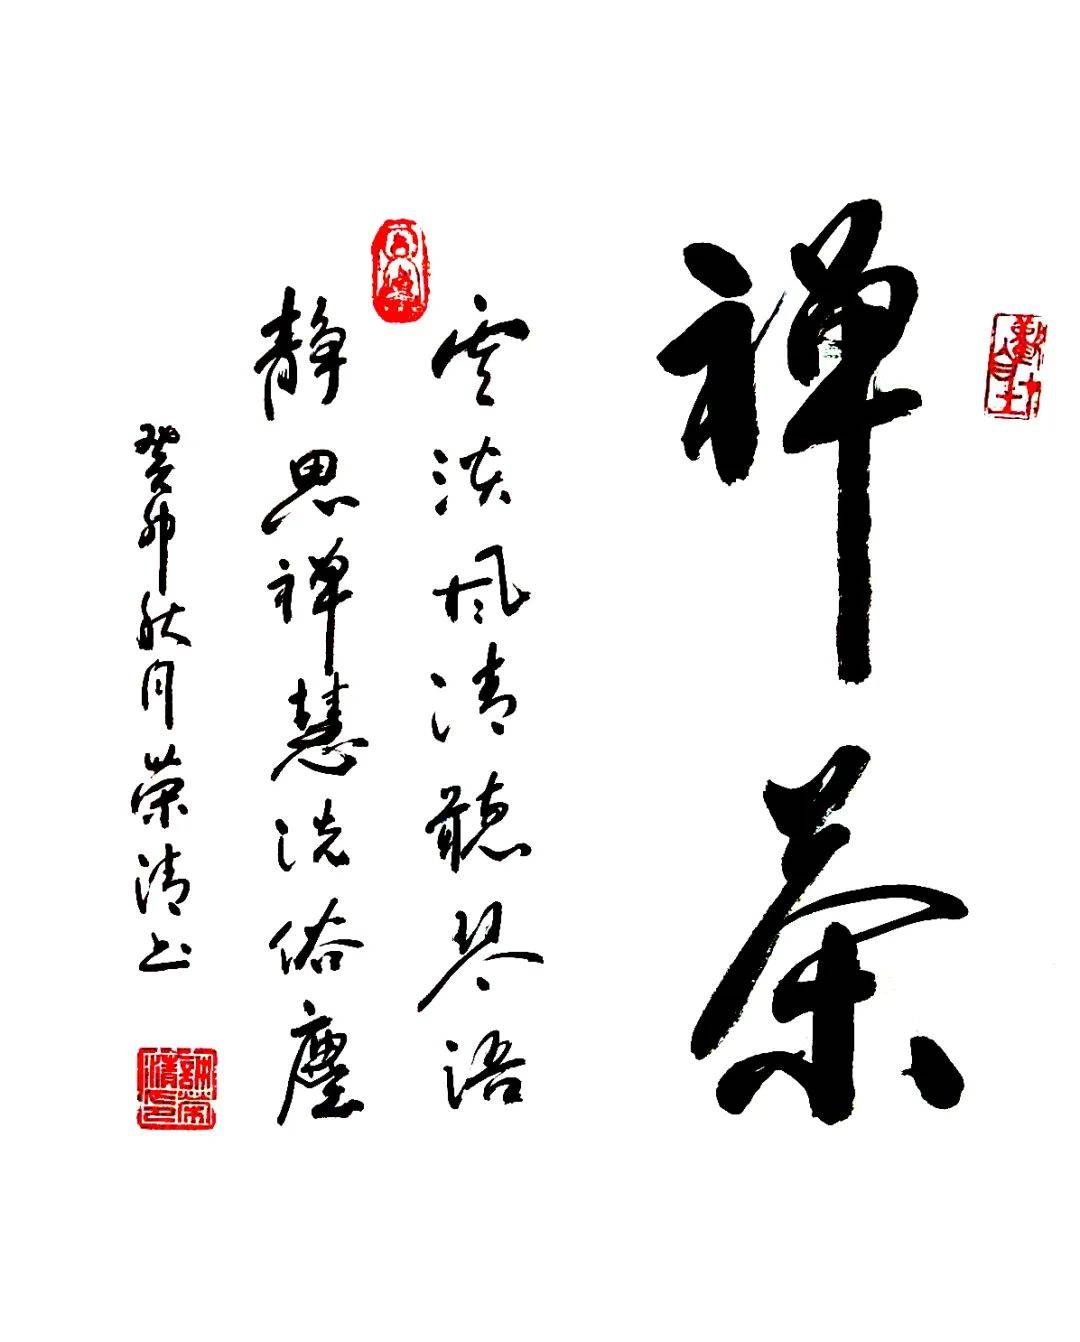 禅茶
雲淡风清聽琴语
静思禅慧洗俗塵
癸卯秋月荣清书